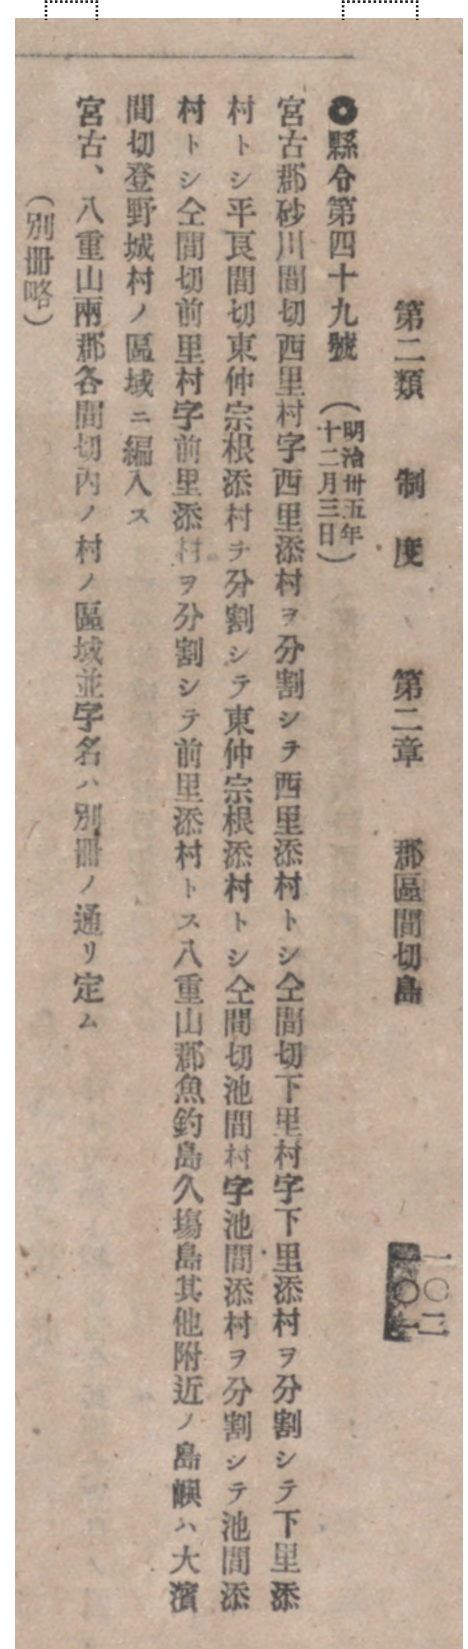 第二類　制度　第二章　郡區間切島　一〇二
◎縣令第四十九號（明治卅五年十二月三日）
宮古郡砂川間切西里村字西里添村ヲ分割シテ西里添村トシ仝間切下里村字下里添村ヲ分割シテ下里添
村トシ平良間切東仲宗根添村ヲ分割シテ東仲宗根添村トシ仝間切池間村字池間添村ヲ分割シテ池間添
村トシ仝間切前里村字前里添村ヲ分割シテ前里添村トス八重山郡魚釣島久塲島其他附近ノ島嶼ハ大濱
間切登野城村ノ區域ニ編入ス
宮古、八重山兩郡各間切內ノ村ノ區域並字名ハ別冊ノ通リ定ム
（別冊略）